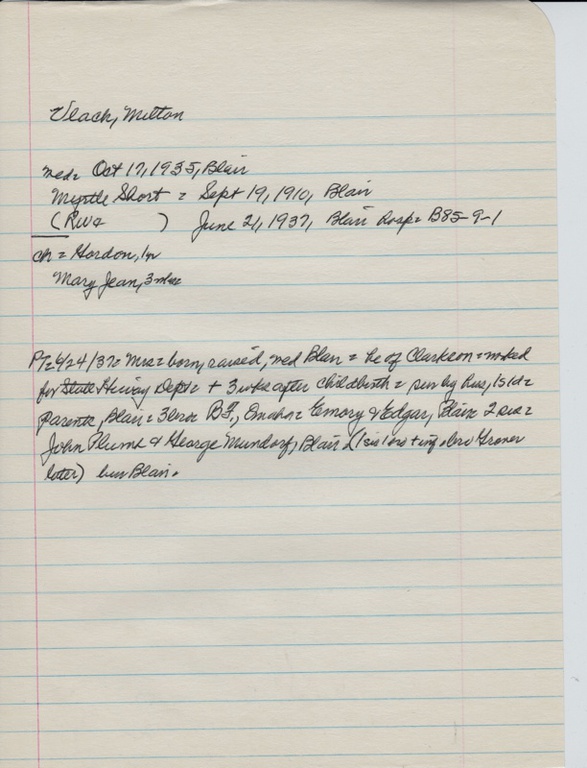 Vlach, Milton
med= Oct 17, 1935, Blair
Myrtle Short = Sept 19, 1910, Blair
(RW& ) June 21, 1937, Blair Hosp= B85-9-1
ch = Gordon, 1yr
Mary Jean, 3wks
PT=6/24/37= Mrs= born, raised, med Blair = he of Clarkson = wked
for State Hiway Dept= + 3 wks after childbirth = sur by hus, 1s1d=
parents, Blair = 3bros= B.F., Omaha= Emory & Edgar, Blair= 2 sis=
John Plumb & George Mundorf, Blair (1 sis 1 bro + inf bro
later) bur Blair.